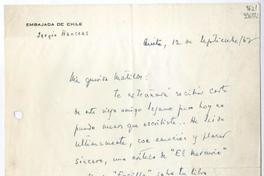 EMBAJADA DE CHILE
Quito, 12 de Septiembre/67
Mi querido Matías:
Te extrañará recibir carta
de este viejo amigo lejano pero hoy no
puedo menos que escribirte. He leído
últimamente, con emoción y placer
sincero, una crítica de "El Mercurio"
sobre tu libro